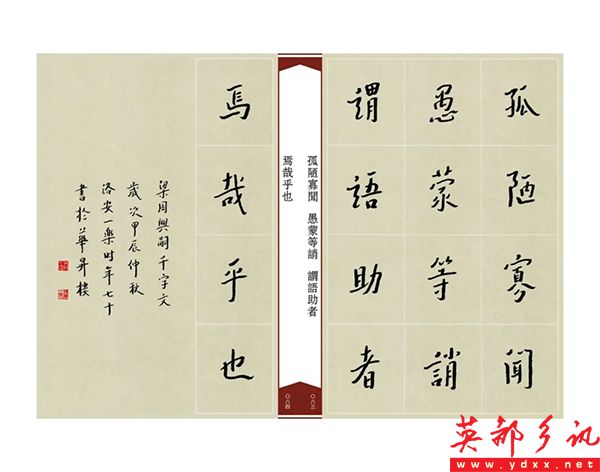 孤陋寡聞
愚蒙等誚
謂語助者
孤陋寡聞　愚蒙等誚　謂語助者
焉哉乎也
〇八三
〇八四
焉哉乎也
梁周興嗣千字文
歲次甲辰仲秋
洛安一樂時年七十
書於華昇樓
英都乡讯
www.ydxx.net